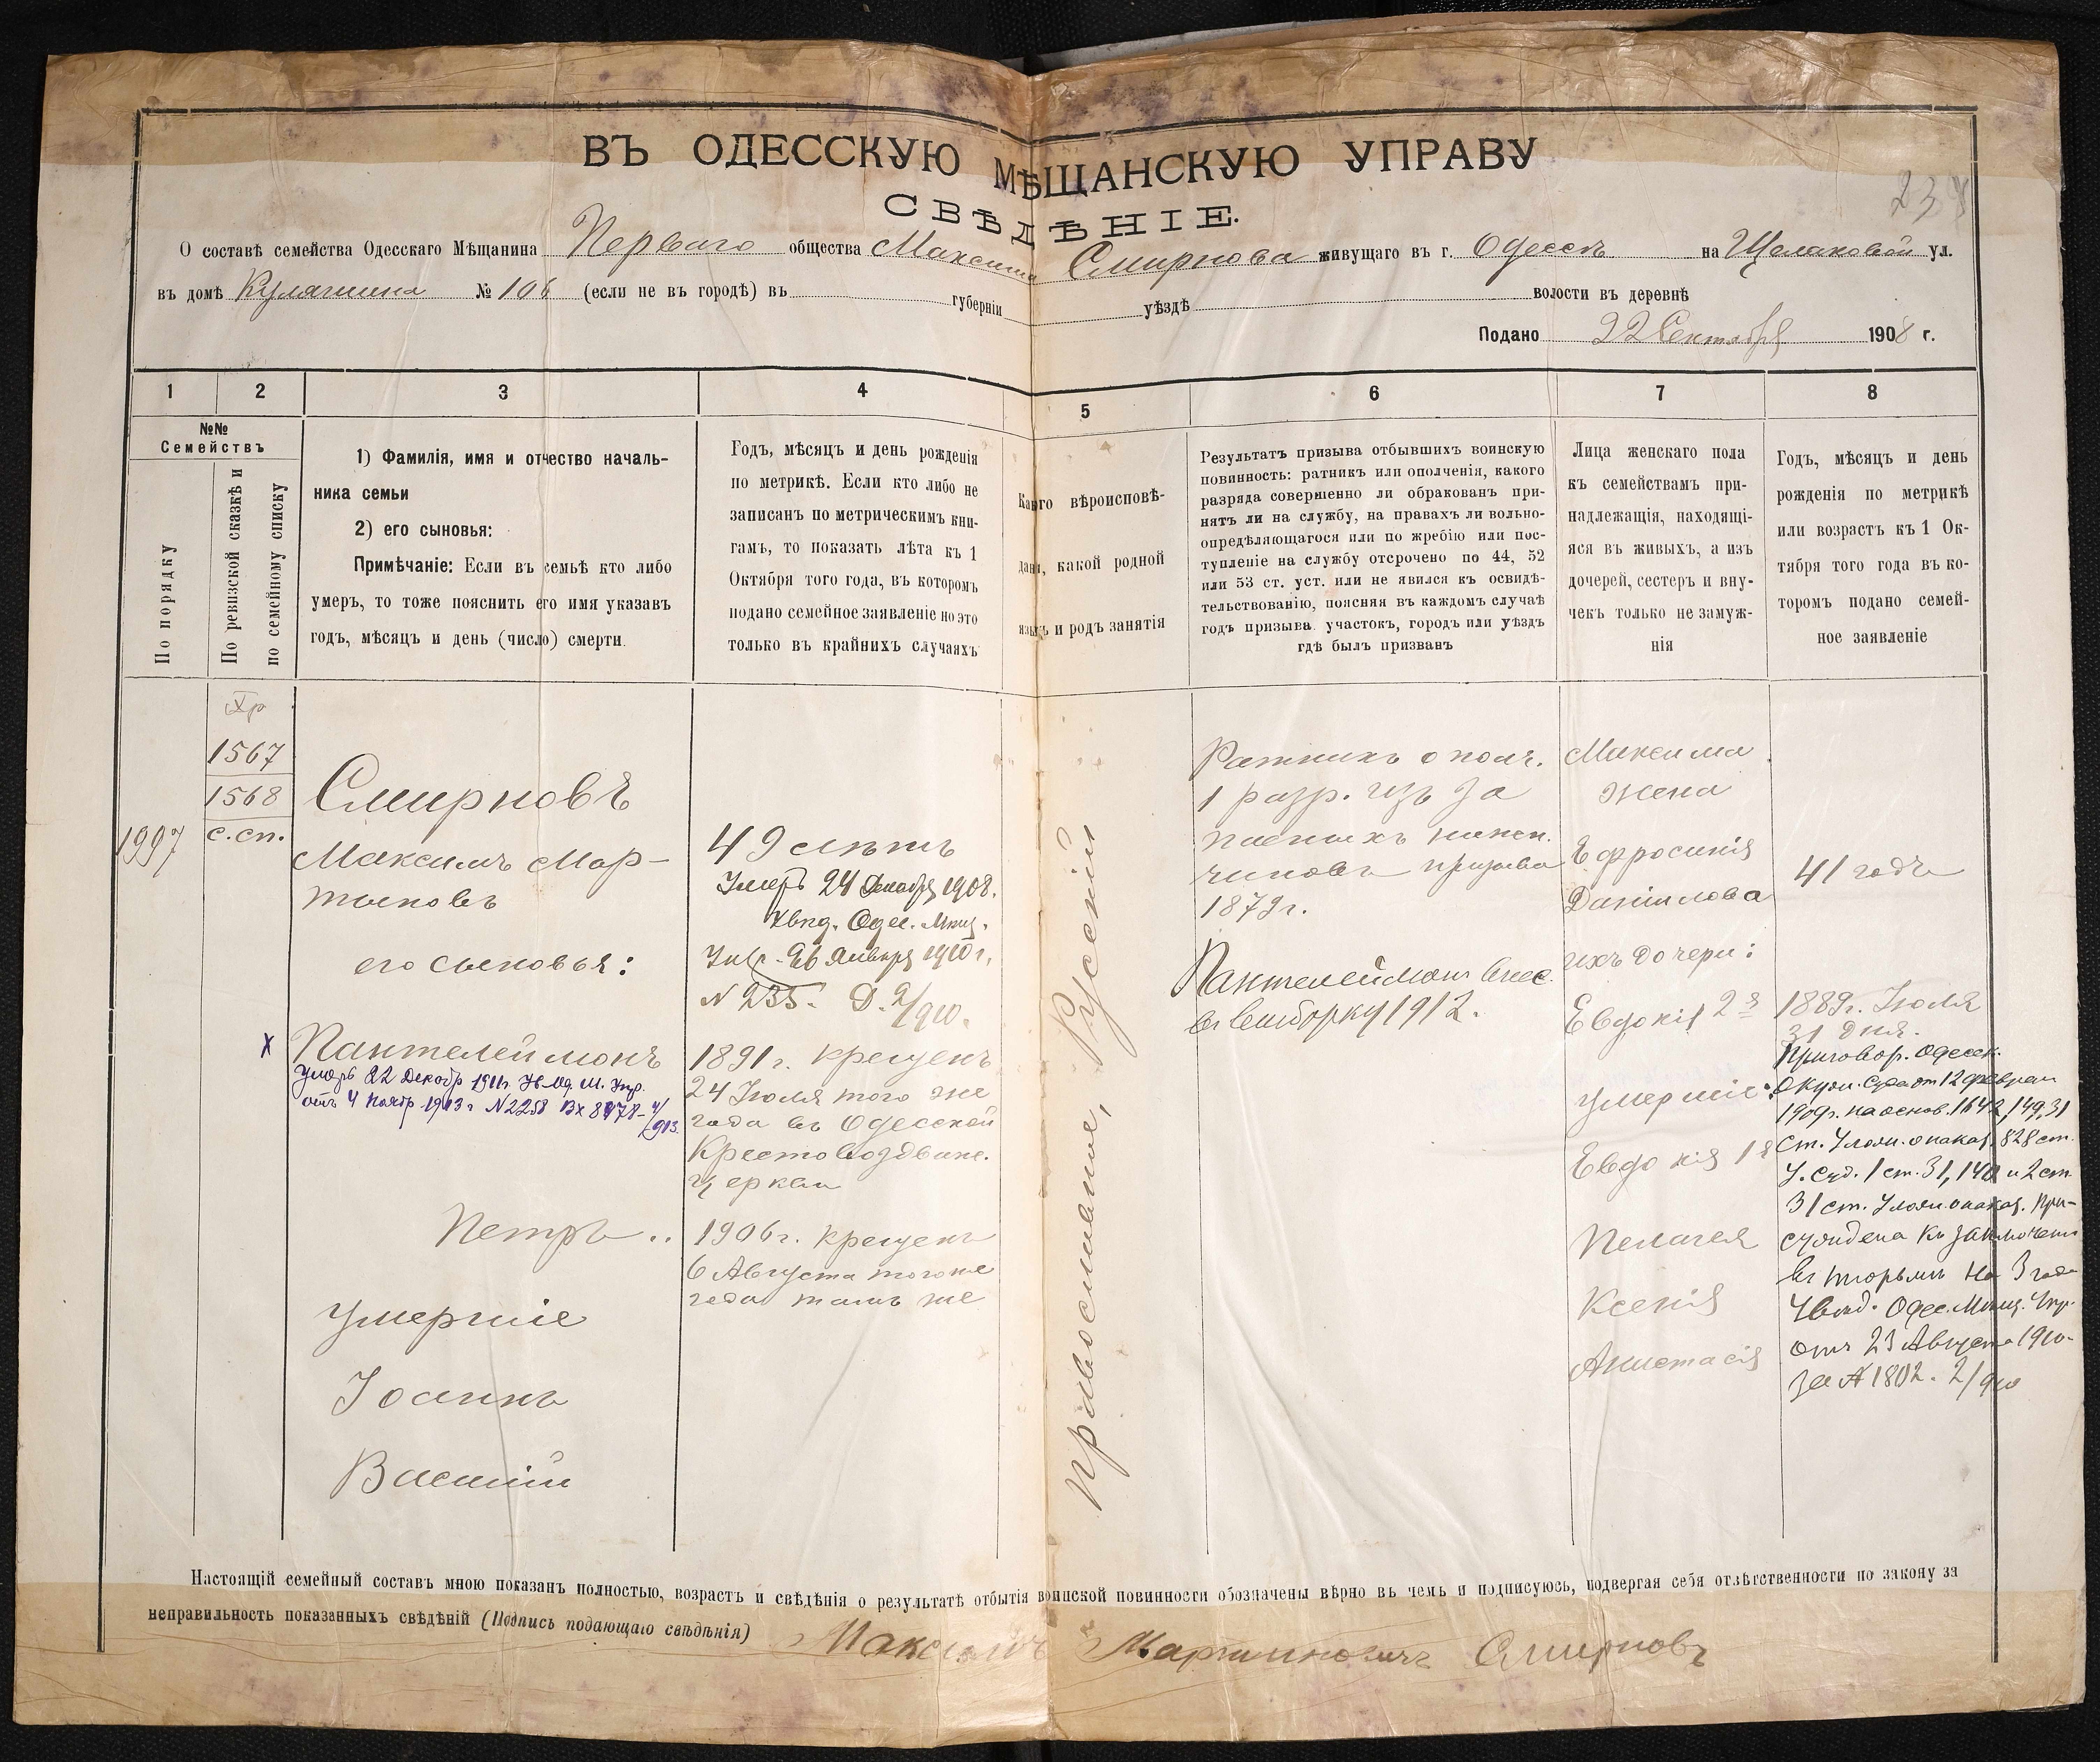 234
ВЪ ОДЕССКУЮ МѢЩАНСКУЮ УПРАВУ
СВѢДѢНІЕ.
О составѣ семейства Одесскаго Мѣщанина Перваго общества Максима Смирнова живущаго въ г. Одессѣ на ул.
въ домѣ № 106 (если не въ городѣ) въ губерніи уѣздѣ волости въ деревнѣ
Подано 22 Сентября 1908 г.
1 2 3 4 5 6 7 8
№№
Семействъ
По порядку
По ревизской сказкѣ и
по семейному списку
1) Фамилія, имя и отчество началь-
ника семьи
2) его сыновья:
Примѣчаніе: Если въ семьѣ кто либо
умеръ, то тоже пояснить его имя указавъ
годъ, мѣсяцъ и день (число) смерти.
Годъ, мѣсяцъ и день рожденія
по метрикѣ. Если кто либо не
записанъ по метрическимъ кни-
гамъ, то показать лѣта къ 1
Октября того года, въ которомъ
подано семейное заявленіе но это
только въ крайнихъ случаяхъ
Какого вѣроисповѣ-
данія, какой родной
языкъ и родъ занятія
Результатъ призыва отбывшихъ воинскую
повинность: ратникъ или ополченія, какого
разряда совершенно ли обракованъ при-
нятъ ли на службу, на правахъ ли вольно-
опредѣляющагося или по жребію или пос-
тупленіе на службу отсрочено по 44, 52
или 53 ст. уст. или не явился къ освидѣ-
тельствованію, поясняя въ каждомъ случаѣ
годъ призыва участокъ, городъ или уѣздъ
гдѣ былъ призванъ
Лица женскаго пола
къ семействамъ при-
надлежащія, находящі-
яся въ живыхъ, а изъ
дочерей, сестеръ и вну-
чекъ только не замуж-
нія
Годъ, мѣсяцъ и день
рожденія по метрикѣ
или возрастъ къ 1 Ок-
тября того года въ ко-
торомъ подано семей-
ное заявленіе
1997
1567
1568
с.сп.
Смирновъ
Максимъ Мар-
тыновъ
его сыновья:
х Пантелеймонъ
Умеръ 22 Декабр 1911г. Ув. Од. М. Упр.
отъ 4 Ноябр 1913 г. N 2258 Вх 8478-
Петръ
Умершіе
Іоаннъ
Василій
49 лѣтъ
Умеръ 24 Декабря 1908.
Увѣд. Одес. Мѣщ.
Упр. 26 Января 1910 г.
N 235. Д. 2/910.
1891 г. крещенъ
24 Іюля того же
года въ Одесской
Крестовоздвиж.
церкви
1906 г. крещенъ
6 Августа того же
года тамъ же
Православные, Русскій
Ратникъ ополч.
1 разр. изъ за
пасныхъ нижн.
чиновъ призыва
1879 г.
Пантелеймонъ внес.
въ выборку 1912.
Максима
жена
Ефросинія
Даніилова
ихъ дочери:
Евдокія 2я
умершіе:
Евдокія 1я
Пелагея
Ксенія
Анастасія
41 годъ
1889 г. Іюля
31 дня.
Приговор. Одесск.
Окружн. Суда от 12 Феврал
1909 г. на основ. 1642, 149, 31
ст. Улож. о наказ. 828 ст.
У. Суд. 1 ст. 31, 140 и 2 ст.
31 ст. Улож. о наказ. При-
суждена къ заключенію
въ тюрьмѣ на 3 года
Увѣд. Одес. Мѣщ. Упр.
отъ 23 Августа 1910
за № 1802. 2/910
Настоящій семейный составъ мною показанъ полностью, возрастъ и свѣдѣнія о результатѣ отбытія воинской повинности обозначены вѣрно въ чемъ и подписуюсь, подвергая себя отвѣтственности по закону за
неправильность показанныхъ свѣдѣній (Подпись подающаго свѣдѣнія) Максимъ Мартиновичъ Смирновъ